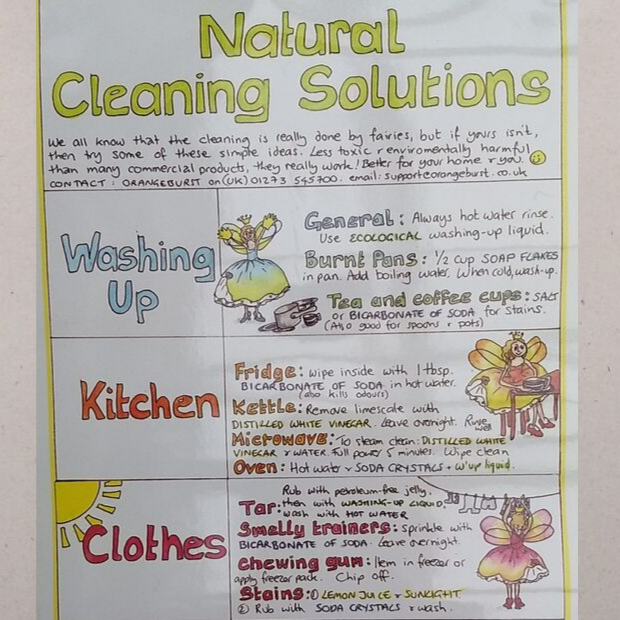 Natural
Cleaning Solutions
We all know that the cleaning is really done by fairies, but if yours isn't,
then try some of these simple ideas. Less toxic & enviromentally harmful
than many commercial products, they really work! Better for your home & you.
CONTACT: ORANGEBURST on (UK) 01273 545700. email: support@orangeburst.co.uk
Washing
Up
General: Always hot water rinse.
Use ECOLOGICAL washing-up liquid.
Burnt Pans: 1/2 cup SOAP FLAKES
in pan. Add boiling water. When cold, wash-up.
Tea and coffee cups: SALT
or BICARBONATE OF SODA for stains.
(Also good for spoons & pots)
Kitchen
Fridge: wipe inside with 1 tbsp.
BICARBONATE OF SODA in hot water.
(also kills odours)
Kettle: Remove limescale with
DISTILLED WHITE VINEGAR. Leave overnight. Rinse well
Microwave: To steam clean: DISTILLED WHITE
VINEGAR & WATER. Full power 5 minutes. Wipe clean
Oven: Hot water & SODA CRYSTALS + w'up liquid.
Clothes
Rub with petroleum-free jelly,
Tar: then with WASHING-UP LIQUID.
wash with HOT WATER
Smelly trainers: sprinkle with
BICARBONATE OF SODA. Leave overnight.
Chewing gum: Item in freezer or
apply freezer pack. Chip off.
Stains: ① LEMON JUICE & SUNLIGHT
② Rub with SODA CRYSTALS & wash.